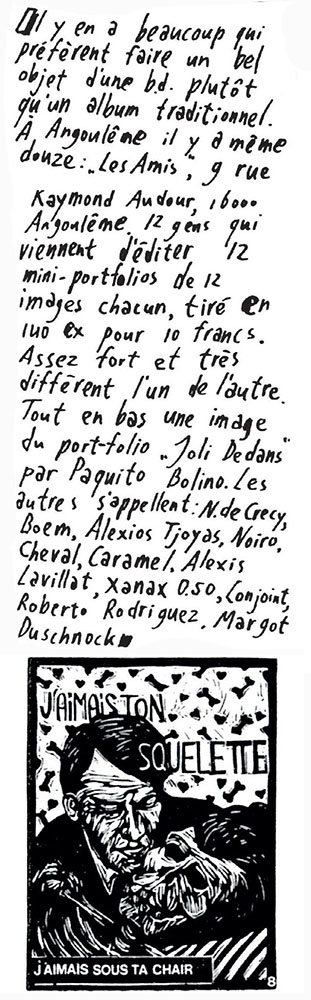 Il y en a beaucoup qui
préfèrent faire un bel
objet d'une b.d. plutôt
qu'un album traditionnel.
À Angoulême il y a même
douze: „Les Amis", 9 rue
Raymond Audour, 16000
Angoulême. 12 gens qui
viennent d'éditer 12
mini-portfolios de 12
images chacun, tiré en
100 ex pour 10 francs.
Assez fort et très
différent l'un de l'autre.
Tout en bas une image
du port-folio „Joli Dedans"
par Paquito Bolino. Les
autres s'appellent: N. de Crecy,
Boem, Alexios Tjoyas, Noiro,
Cheval, Caramel, Alexis
Lavillat, Xanax 0.50, Conjoint,
Roberto Rodriguez, Margot
Duschnock
J'AIMAIS TON
SQUELETTE
J'AIMAIS SOUS TA CHAIR
8